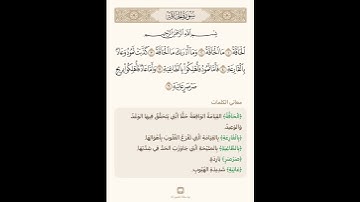 سُورَةُ الحَاقَّةِ
بِسْمِ اللَّهِ الرَّحْمَٰنِ الرَّحِيمِ
الْحَاقَّةُ ۝ مَا الْحَاقَّةُ ۝ وَمَا أَدْرَاكَ مَا الْحَاقَّةُ ۝ كَذَّبَتْ ثَمُودُ وَعَادٌ
بِالْقَارِعَةِ ۝ فَأَمَّا ثَمُودُ فَأُهْلِكُوا بِالطَّاغِيَةِ ۝ وَأَمَّا عَادٌ فَأُهْلِكُوا بِرِيحٍ
صَرْصَرٍ عَاتِيَةٍ ۝
معاني الكلمات
﴿الْحَاقَّةُ﴾ القِيَامَةُ الوَاقِعَةُ حَقًّا الَّتِي يَتَحَقَّقُ فِيهَا الوَعْدُ
وَالوَعِيدُ.
﴿بِالْقَارِعَةِ﴾ بِالقِيَامَةِ الَّتِي تَقْرَعُ القُلُوبَ بِأَهْوَالِهَا.
﴿بِالطَّاغِيَةِ﴾ بِالصَّيْحَةِ الَّتِي جَاوَزَتِ الحَدَّ فِي شِدَّتِهَا.
﴿صَرْصَرٍ﴾ بَارِدَةٍ.
﴿عَاتِيَةٍ﴾ شَدِيدَةِ الهُبُوبِ.